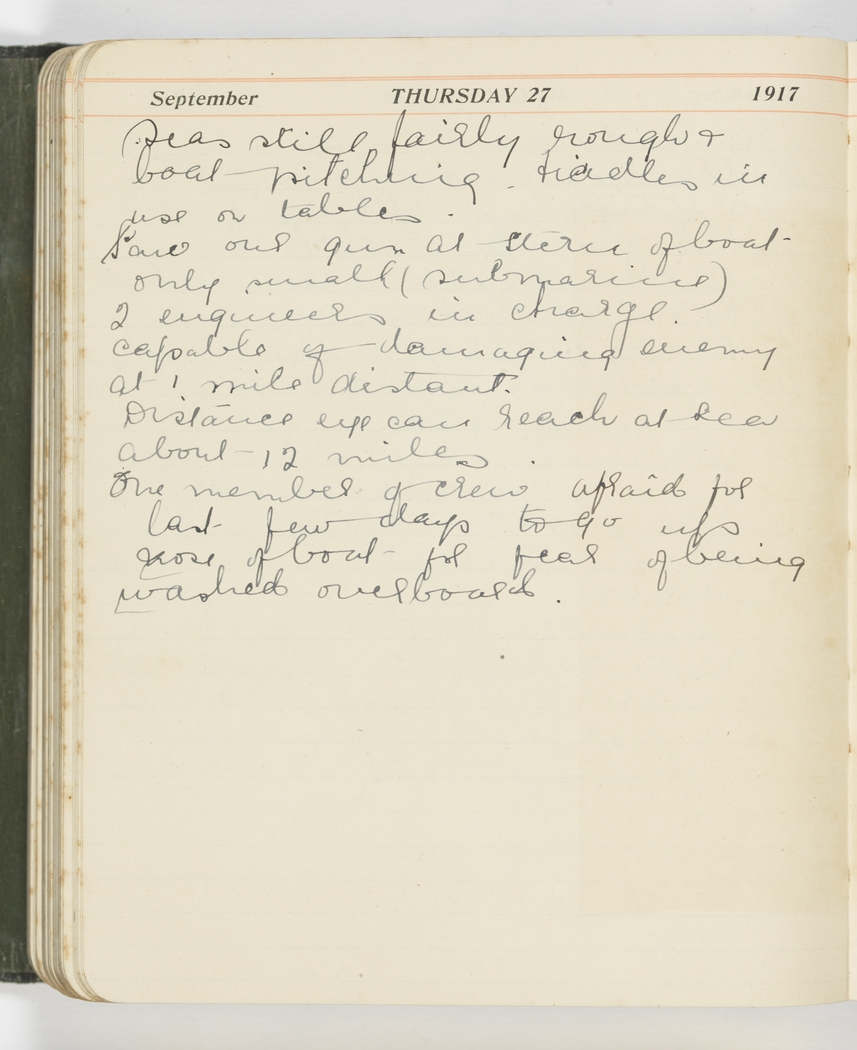 September THURSDAY 27 1917
Seas still fairly rough &
boat pitching. fiddles in
use on tables.
Saw our gun at stern of boat -
only small (submarine)
2 engineers in charge.
capable of damaging enemy
at 1 mile distant.
Distance eye can reach at sea
about 12 miles.
One member of crew afraid for
last few days to go up
nose of boat for fear of being
washed overboard.